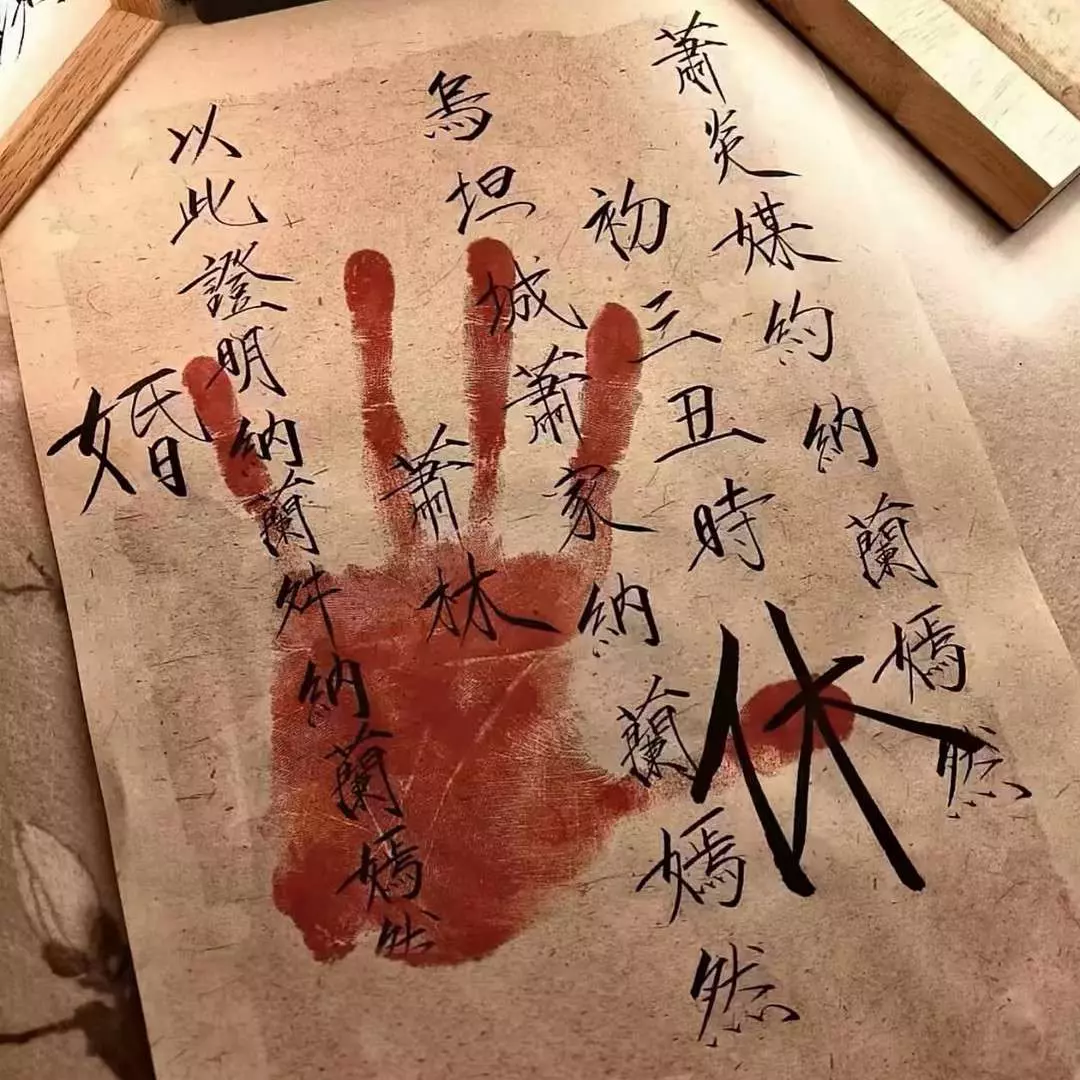 蕭炎媒約納蘭嫣然
初三丑時
休
烏坦城蕭家納蘭嫣然
蕭林
以此證明納蘭納蘭嫣然
婚